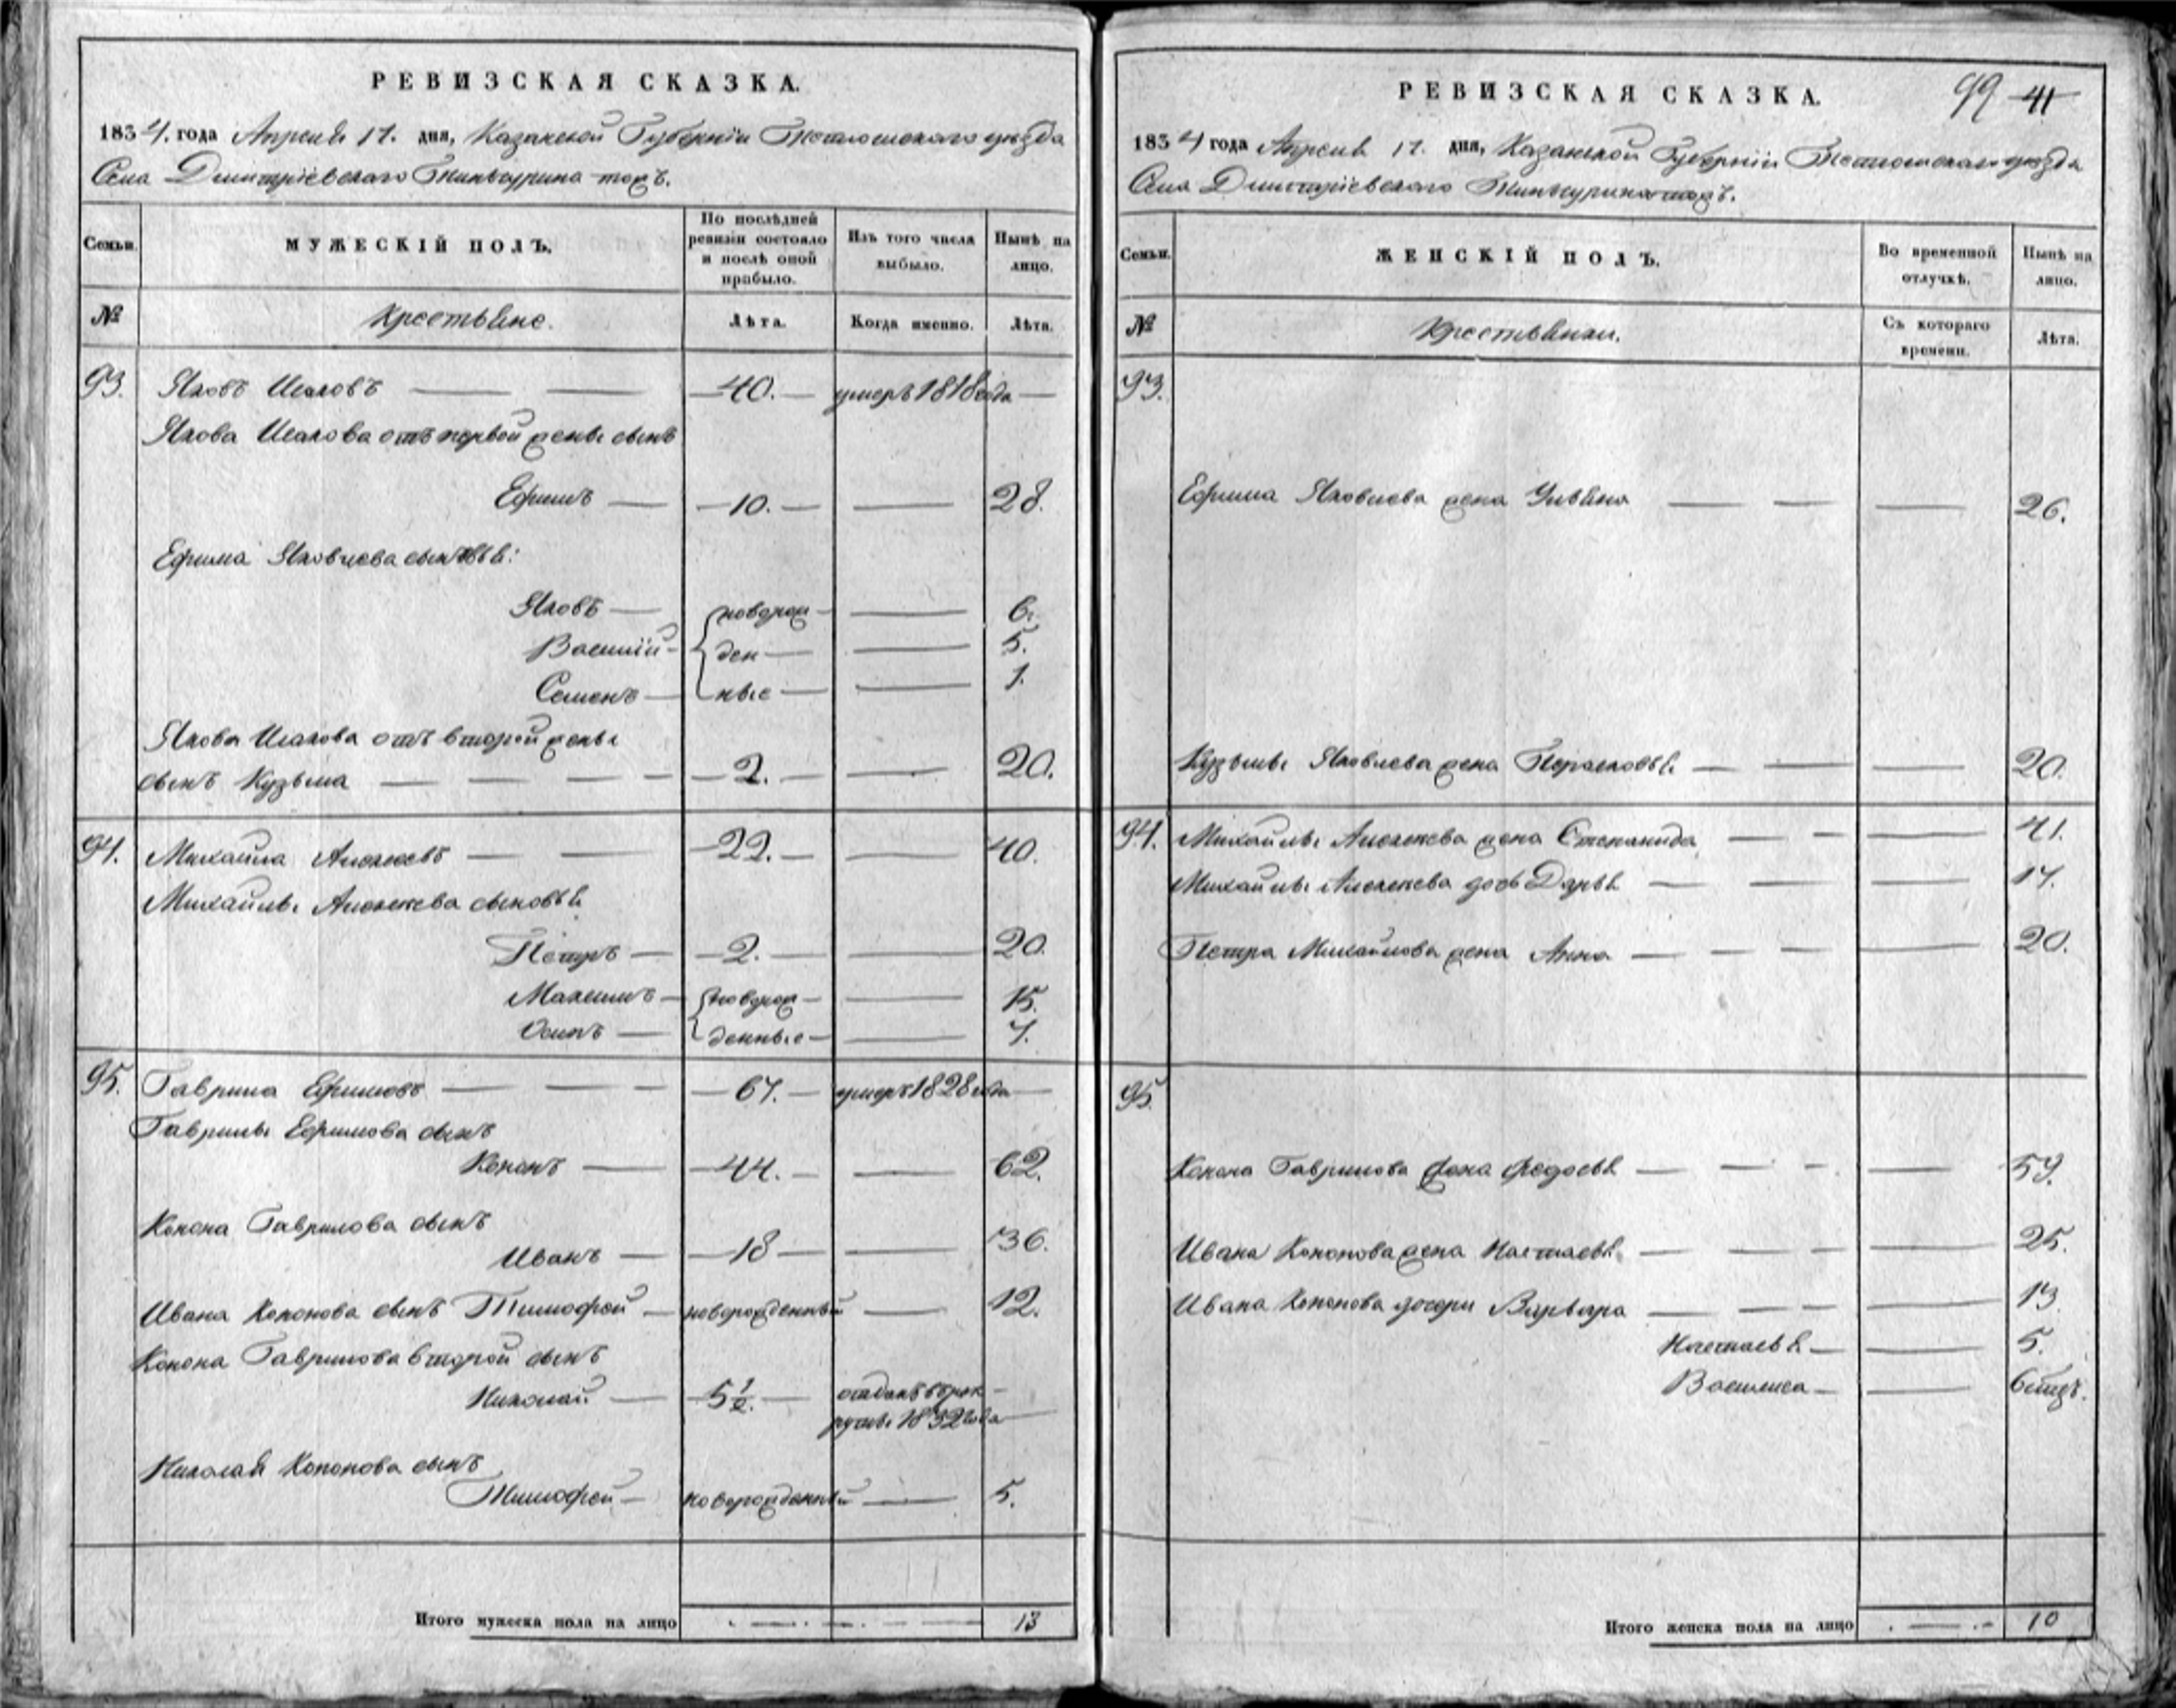 РЕВИЗСКАЯ СКАЗКА.
1834. года Апреля 17. дня, Казанской Губернiи Тетюшскаго уезда
Села Димитрiевскаго тожъ.
Семьи.
МУЖЕСКIЙ ПОЛЪ.
По послѣдней ревизiи состояло и послѣ оной прибыло.
Изъ того числа выбыло.
Нынѣ на лицо.
№
Крестьяне.
Лѣта.
Когда именно.
Лѣта.
93. Яковъ Исаковъ — — —40.— умеръ 1818 года —
Якова Исакова отъ первой жены сынъ
Ефимъ — —10.— — 28.
Ефима Яковлева сыновья:
Яковъ — новорож— — 6.
Василiй— ден— — 5.
Семенъ— ные — — 1.
Якова Исакова отъ второй жены
сынъ Кузьма — — — — —2.— — 20.
94. Михайла Алексеевъ — — —22.— — 40.
Михайлы Алексеева сыновья
Петръ — —2.— — 20.
Максимъ— новорож— — 15.
Осипъ — денные— — 7.
95. Гаврила Ефимовъ — — — —67.— умеръ 1828 года—
Гаврилы Ефимова сынъ
Кононъ — —44.— — 62.
Конона Гаврилова сынъ
Иванъ — —18— — 36.
Ивана Кононова сынъ Тимофей — новорожденный — 12.
Конона Гаврилова второй сынъ
Николай — 5 1/2.— отданъ въ рек—
руты 1832 года—
Николая Кононова сынъ
Тимофей— новорожденный — 5.
Итого мужеска пола на лицо 13
РЕВИЗСКАЯ СКАЗКА.
99 41
1834 года Апреля 17. дня, Казанской Губернiи Тетюшскаго уезда
Села Димитрiевскаго тожъ.
Семьи.
ЖЕНСКIЙ ПОЛЪ.
Во временной отлучкѣ.
Нынѣ на лицо.
№
Крестьянки.
Съ котораго времени.
Лѣта.
93.
Ефима Яковлева жена Ульяна — — — 26.
Кузьмы Яковлева жена — — — 20.
94. Михайлы Алексеева жена Степанида — — — 41.
Михайлы Алексеева дочь Дарья — — — — 17.
Петра Михайлова жена Анна — — — — 20.
95.
Конона Гаврилова жена Федосья — — — — 59.
Ивана Кононова жена Настасья — — — — 25.
Ивана Кононова дочери Варвара — — — — 13
Настасья— — 5.
Василиса— —
Итого женска пола на лицо 10